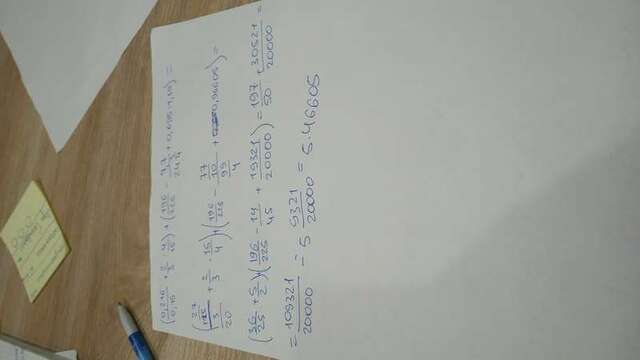 (0,216/0,15 + 2/3 : 4/15) + (196/225 - 7,7/24 3/4 + 0,695·1,39) =
(27/125/3/20 + 2/3 · 15/4) + (196/225 - 77/10/99/4 + 0,96605) =
(36/25 + 5/2) + (196/225 - 14/45 + 19321/20000) = 197/50 + 30521/20000 =
= 109321/20000 = 5 9321/20000 = 5.46605